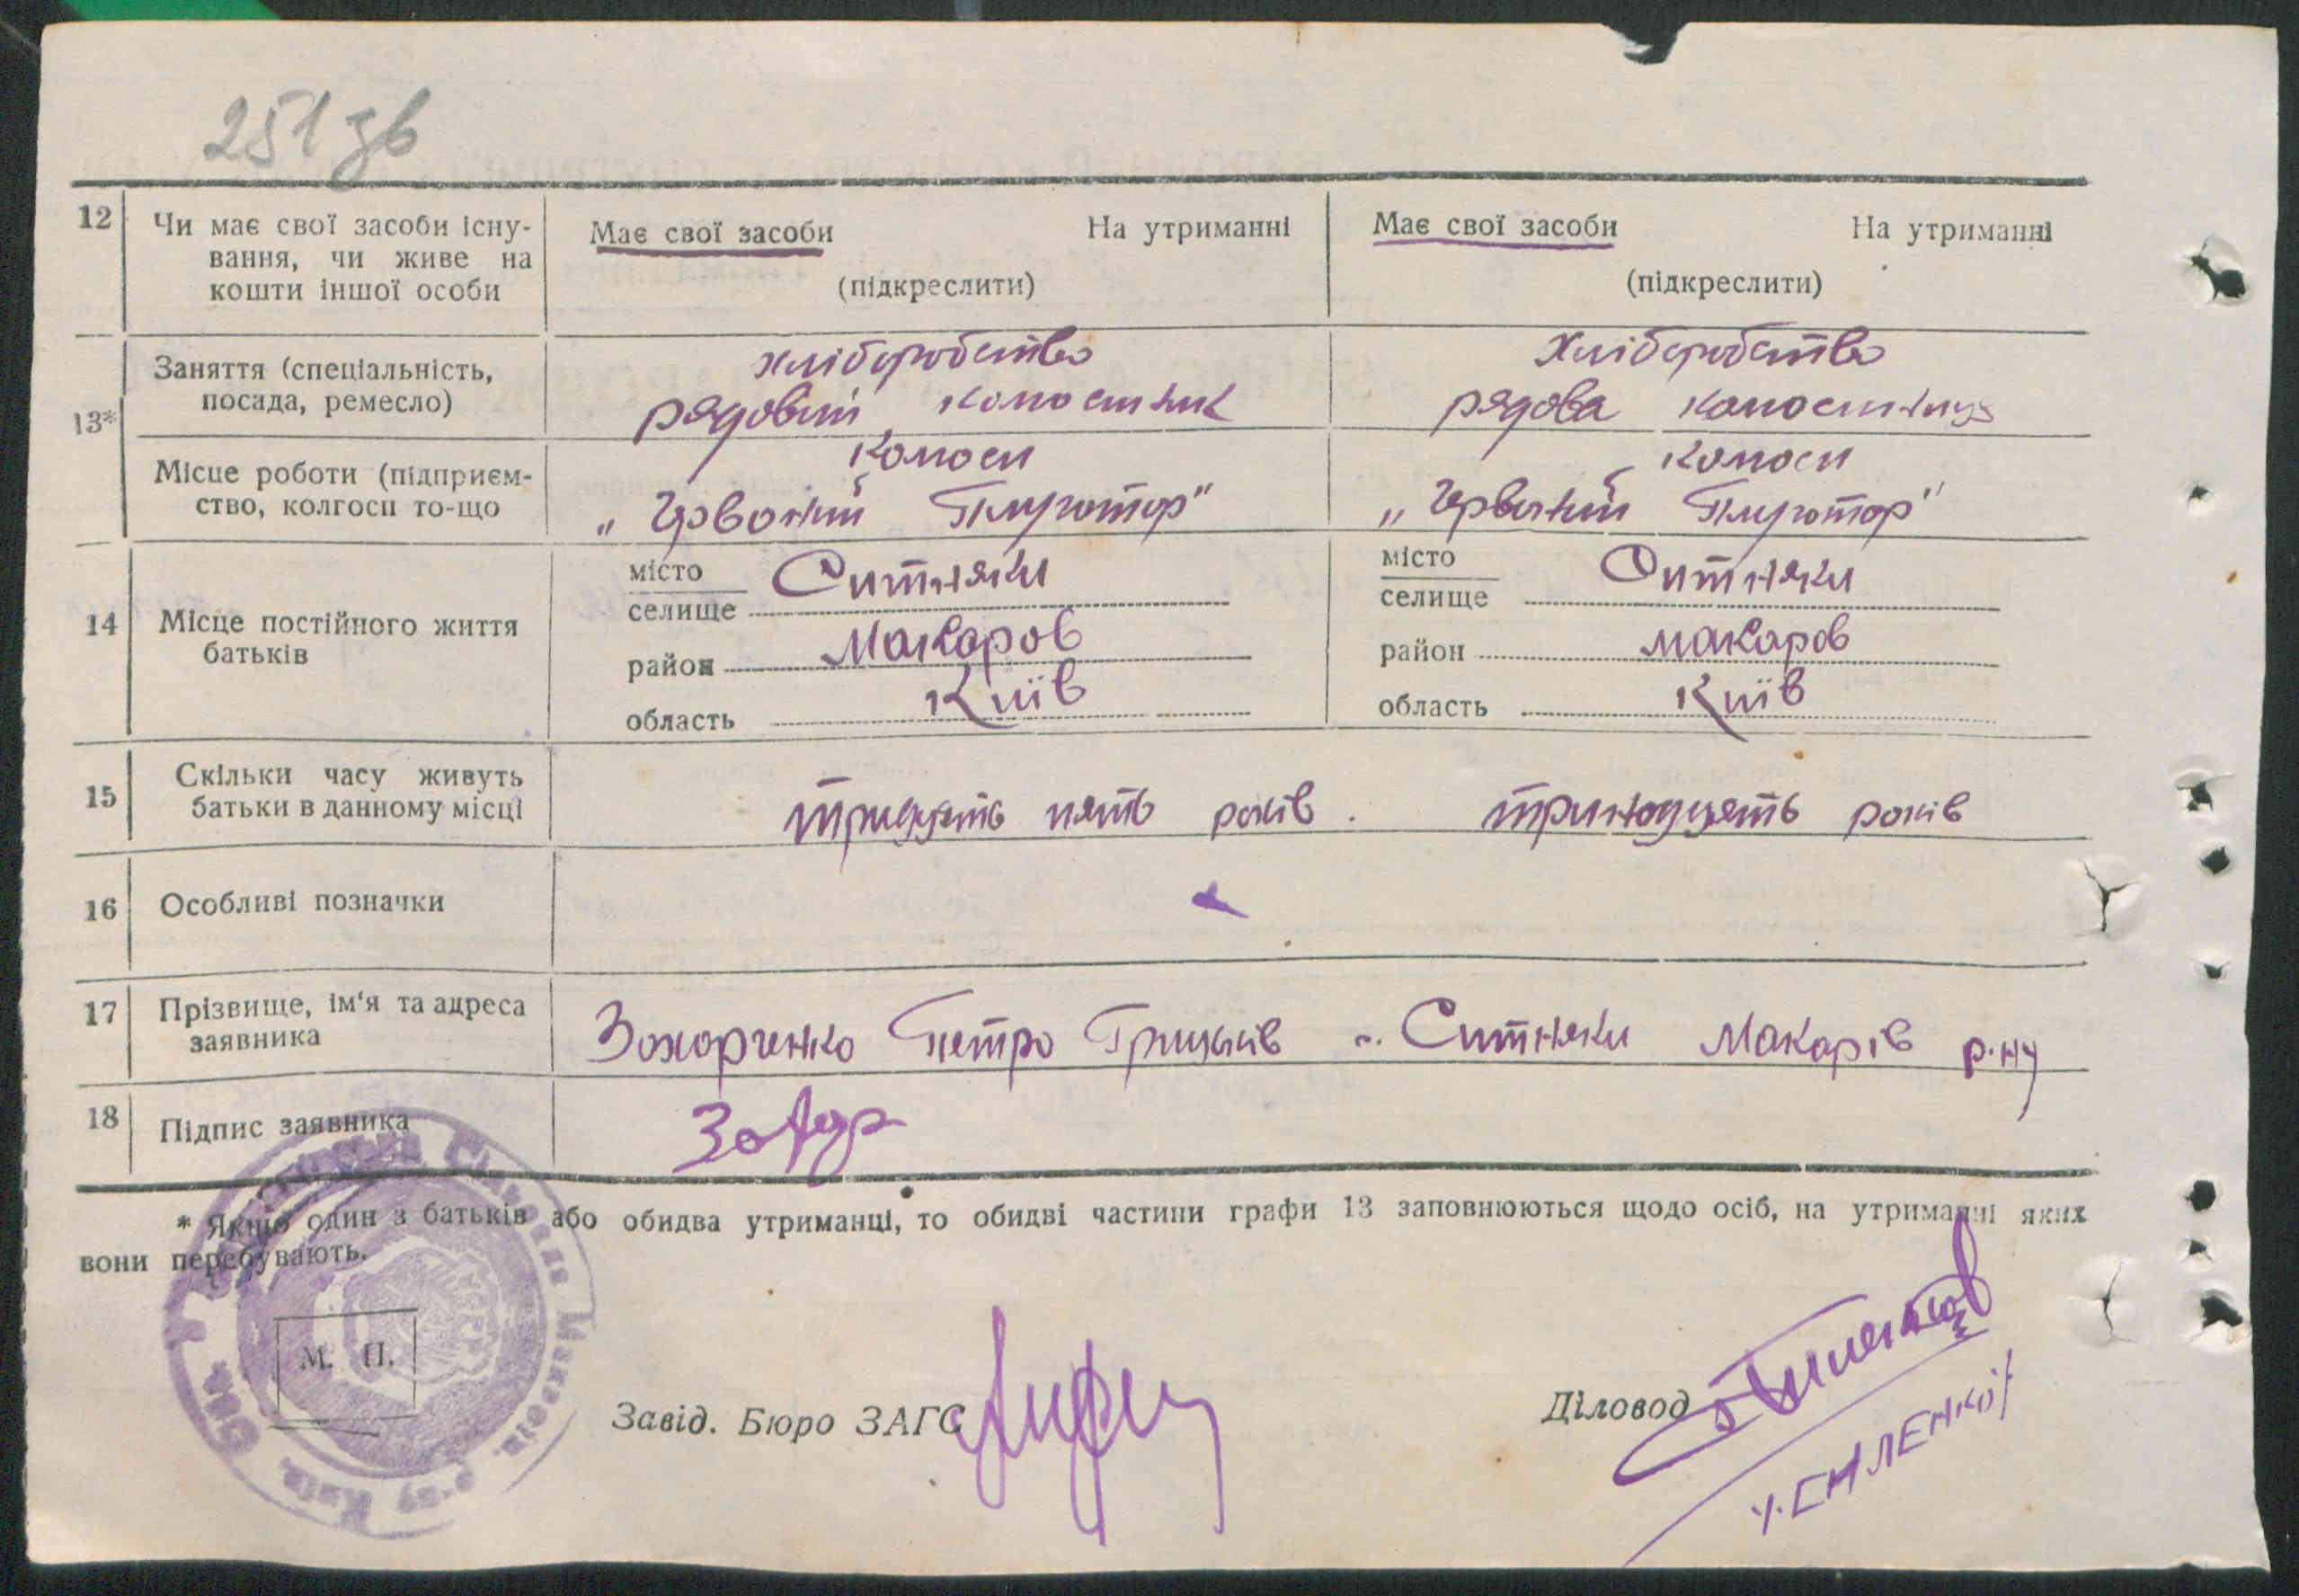 251 зв
12 Чи має свої засоби існу- Має свої засоби На утриманні Має свої засоби На утриманні
вання, чи живе на
кошти іншої особи (підкреслити) (підкреслити)
Заняття (спеціальність, хліборобство Хліборобство
посада, ремесло) рядовий колгоспник рядова колгоспниця
13*
Місце роботи (підприєм- колгосп колгосп
ство, колгосп то-що „Червоний Плугатор" „Червоний Плугатор"
14 Місце постійного життя
батьків
місто Ситняки місто Ситняки
селище селище
район Макаров район Макаров
область Київ область Київ
15 Скільки часу живуть
батьки в данному місці тридцять пять років. тринадцять років
16 Особливі позначки
17 Прізвище, ім'я та адреса
заявника Захарченко Петро Грицьків с. Ситняки Макарів р-ну
18 Підпис заявника Захар
* Якщо один з батьків або обидва утриманці, то обидві частини графи 13 заповнюються щодо осіб, на утриманні яких
вони перебувають.
М. П.
Завід. Бюро ЗАГС
Діловод